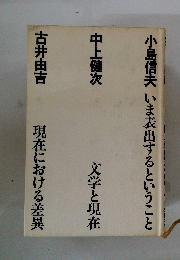 小島信夫 いま表出するということ
中上健次 文学と現在
古井由吉 現在における差異